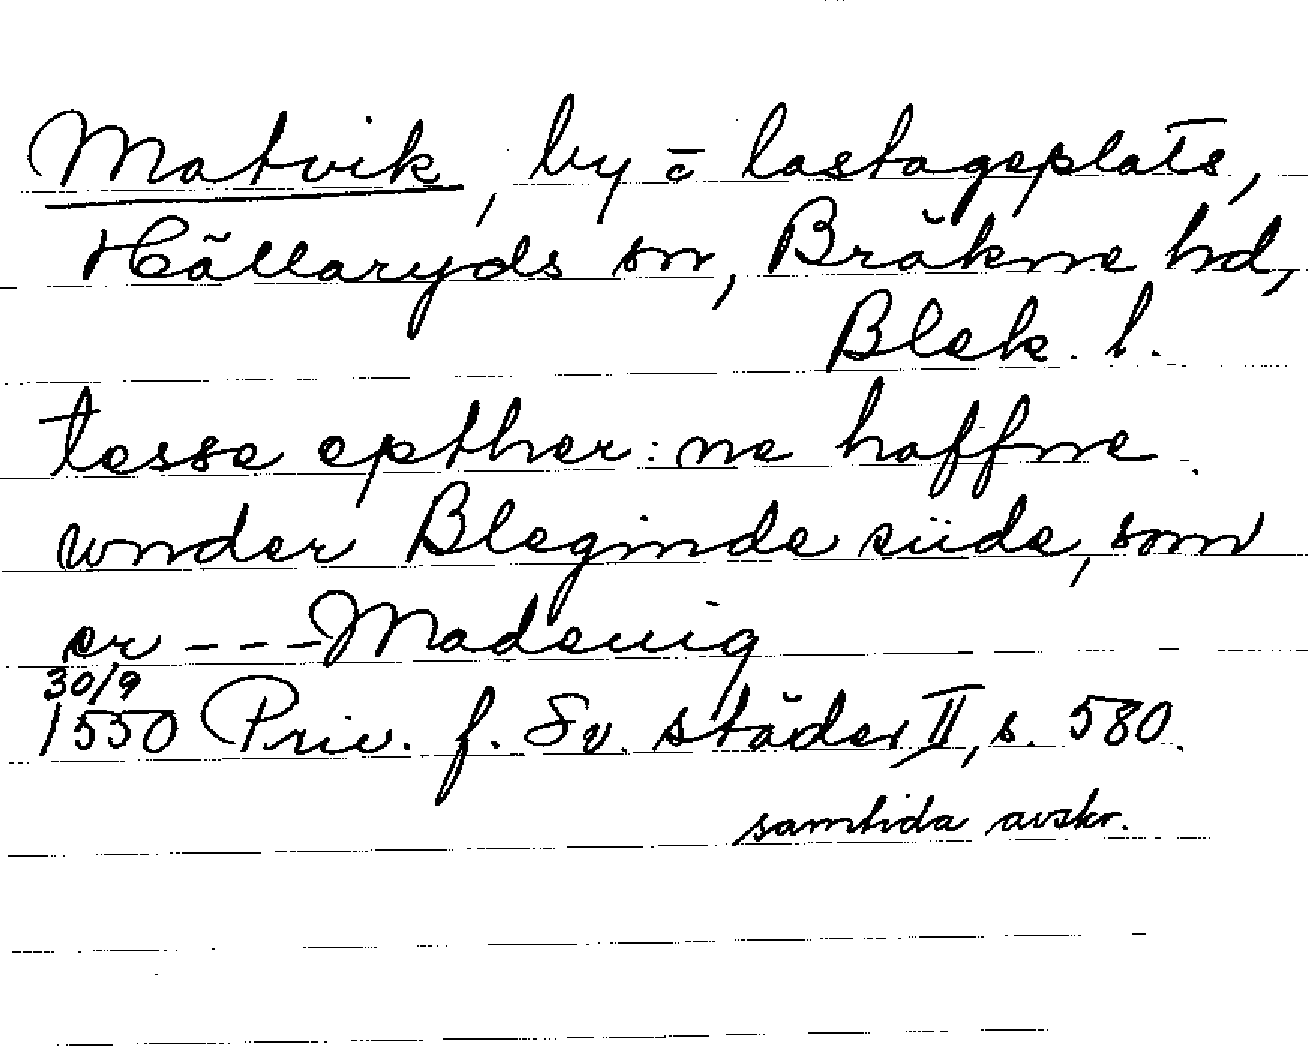 Matvik, by o̅ lastageplats,
Hällaryds sn, Bräkne hd,
Blek. l.
tesse epther: ne haffne
wnder Bleginde siide, som
er - - - Madeuig
30/9
1550 Priv. f. Sv. städer II, s. 580.
samtida avskr.